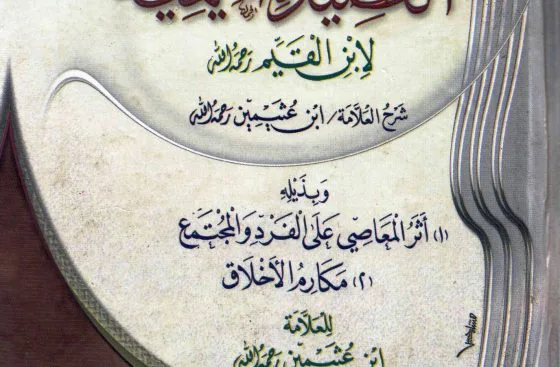 القصيدة الميمية
لِابْنِ الْقَيِّم رَحِمَهُ اللَّه
شَرْحُ العُلَّامَة/ ابْن عُثَيْمِين رَحِمَهُ اللَّه
وَبِذَيْلِهِ
(١) أَثَرُ الْمَعَاصِي عَلَى الفَرْدِ وَالْمُجْتَمَع
(٢) مَكَارِمُ الأَخْلَاق
لِلعَلَّامَة
ابْن عُثَيْمِين رَحِمَهُ اللَّه